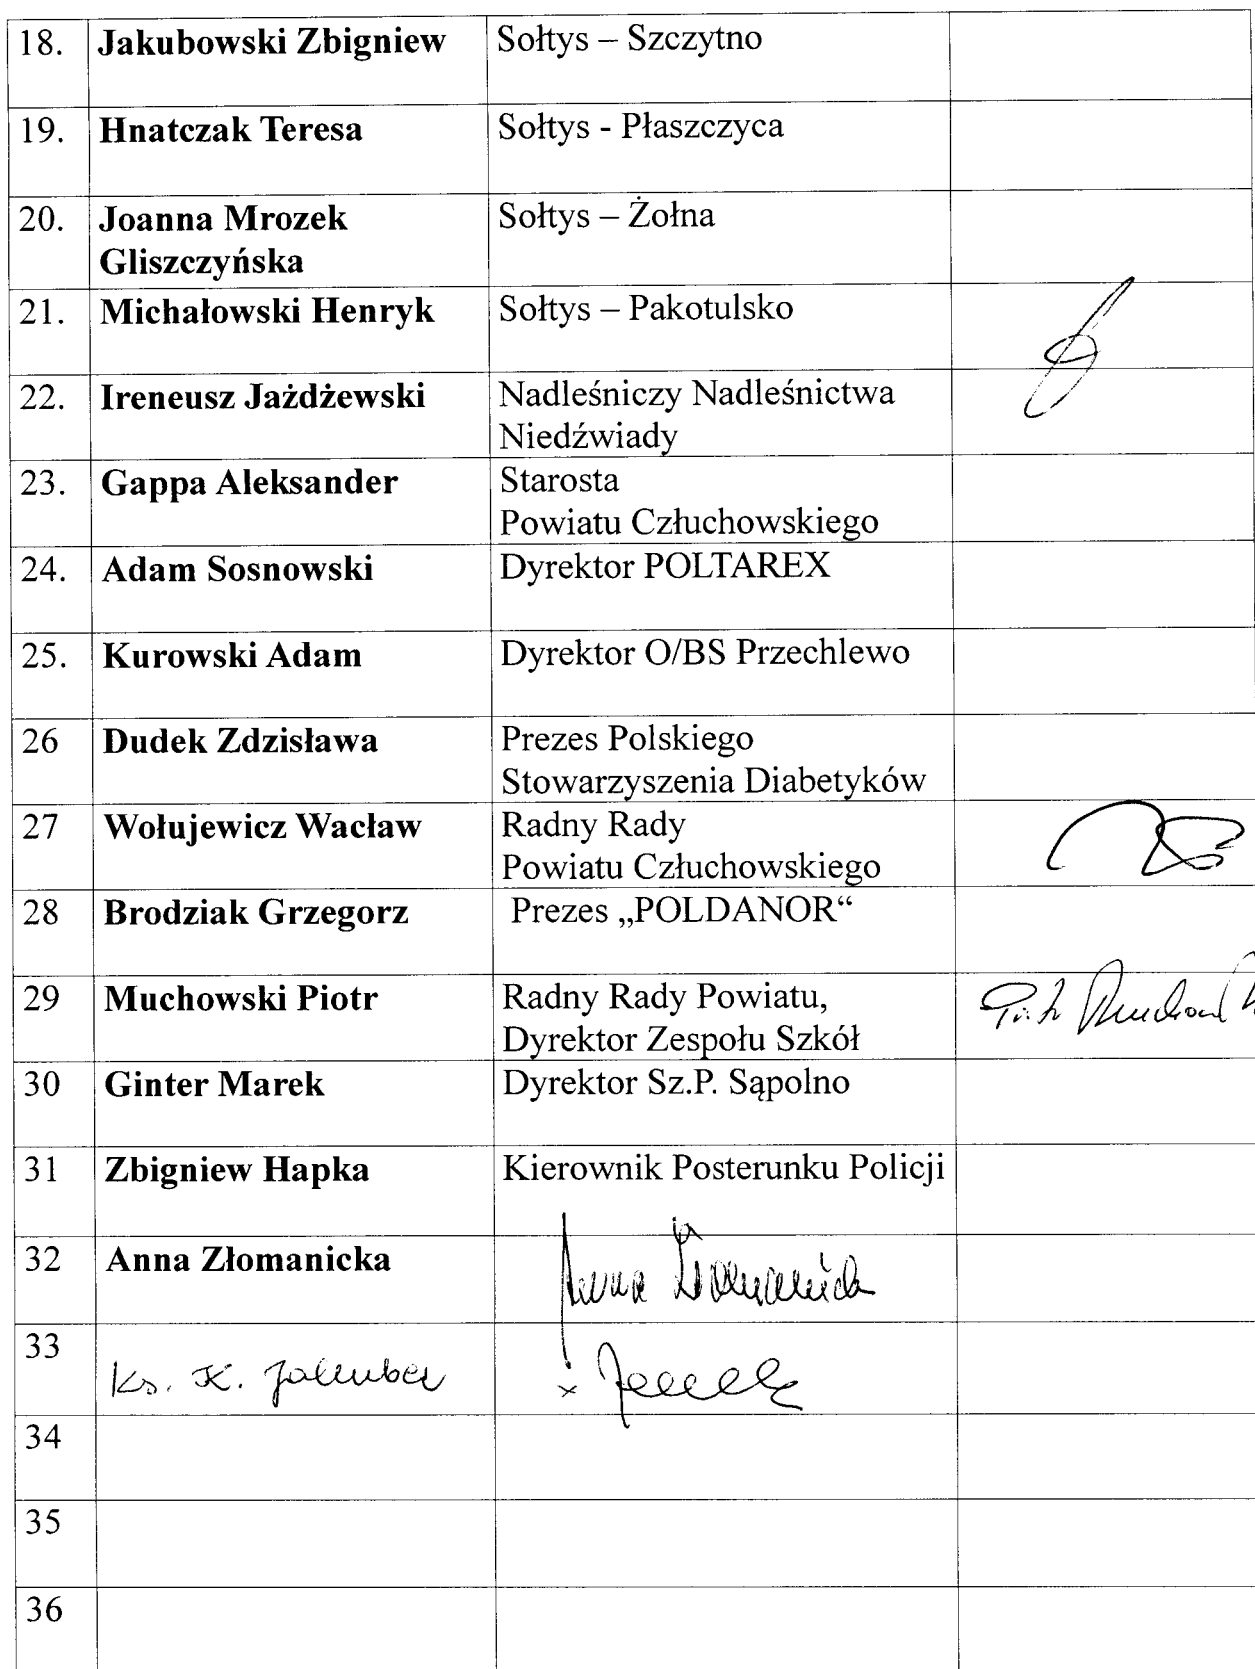 18. Jakubowski Zbigniew Sołtys – Szczytno
19. Hnatczak Teresa Sołtys - Płaszczyca
20. Joanna Mrozek Sołtys – Żołna
Gliszczyńska
21. Michałowski Henryk Sołtys – Pakotulsko
22. Ireneusz Jażdżewski Nadleśniczy Nadleśnictwa
Niedźwiady
23. Gappa Aleksander Starosta
Powiatu Człuchowskiego
24. Adam Sosnowski Dyrektor POLTAREX
25. Kurowski Adam Dyrektor O/BS Przechlewo
26 Dudek Zdzisława Prezes Polskiego
Stowarzyszenia Diabetyków
27 Wołujewicz Wacław Radny Rady
Powiatu Człuchowskiego
28 Brodziak Grzegorz Prezes „POLDANOR“
29 Muchowski Piotr Radny Rady Powiatu,
Dyrektor Zespołu Szkół
30 Ginter Marek Dyrektor Sz.P. Sąpolno
31 Zbigniew Hapka Kierownik Posterunku Policji
32 Anna Złomanicka Anna
33 Ks. K.
34
35
36